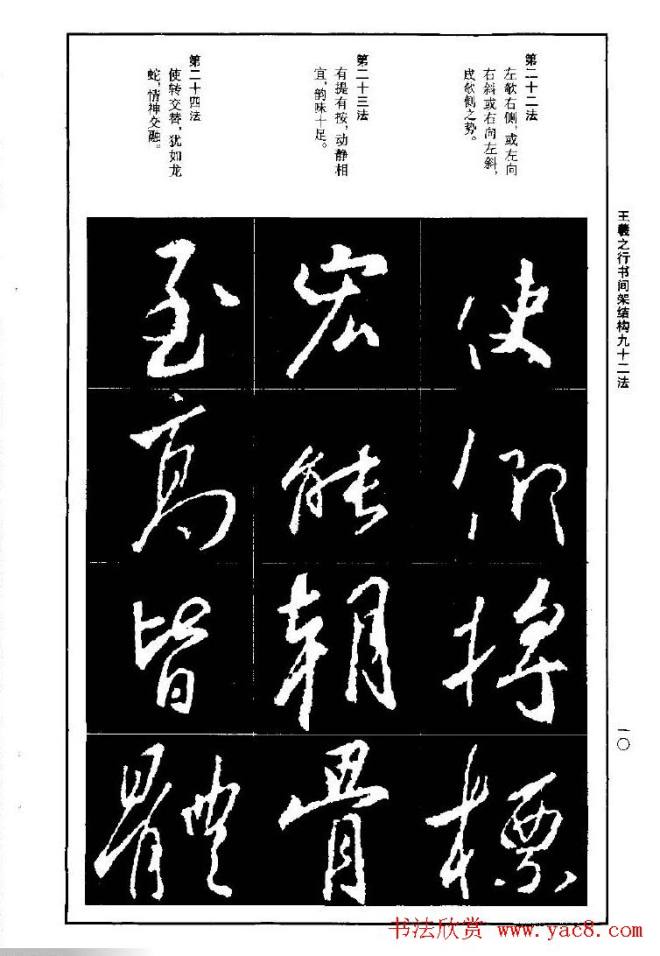 王羲之行书间架结构九十二法
第二十二法
左欹右侧，或左向
右斜或右向左斜，
成欹侧之势。
第二十三法
有提有按，动静相
宜，韵味十足。
第二十四法
使转交替，犹如龙
蛇，情神交融。
使仰将標
宏能朝骨
至高皆體
一〇
书法欣赏 www.yac8.com